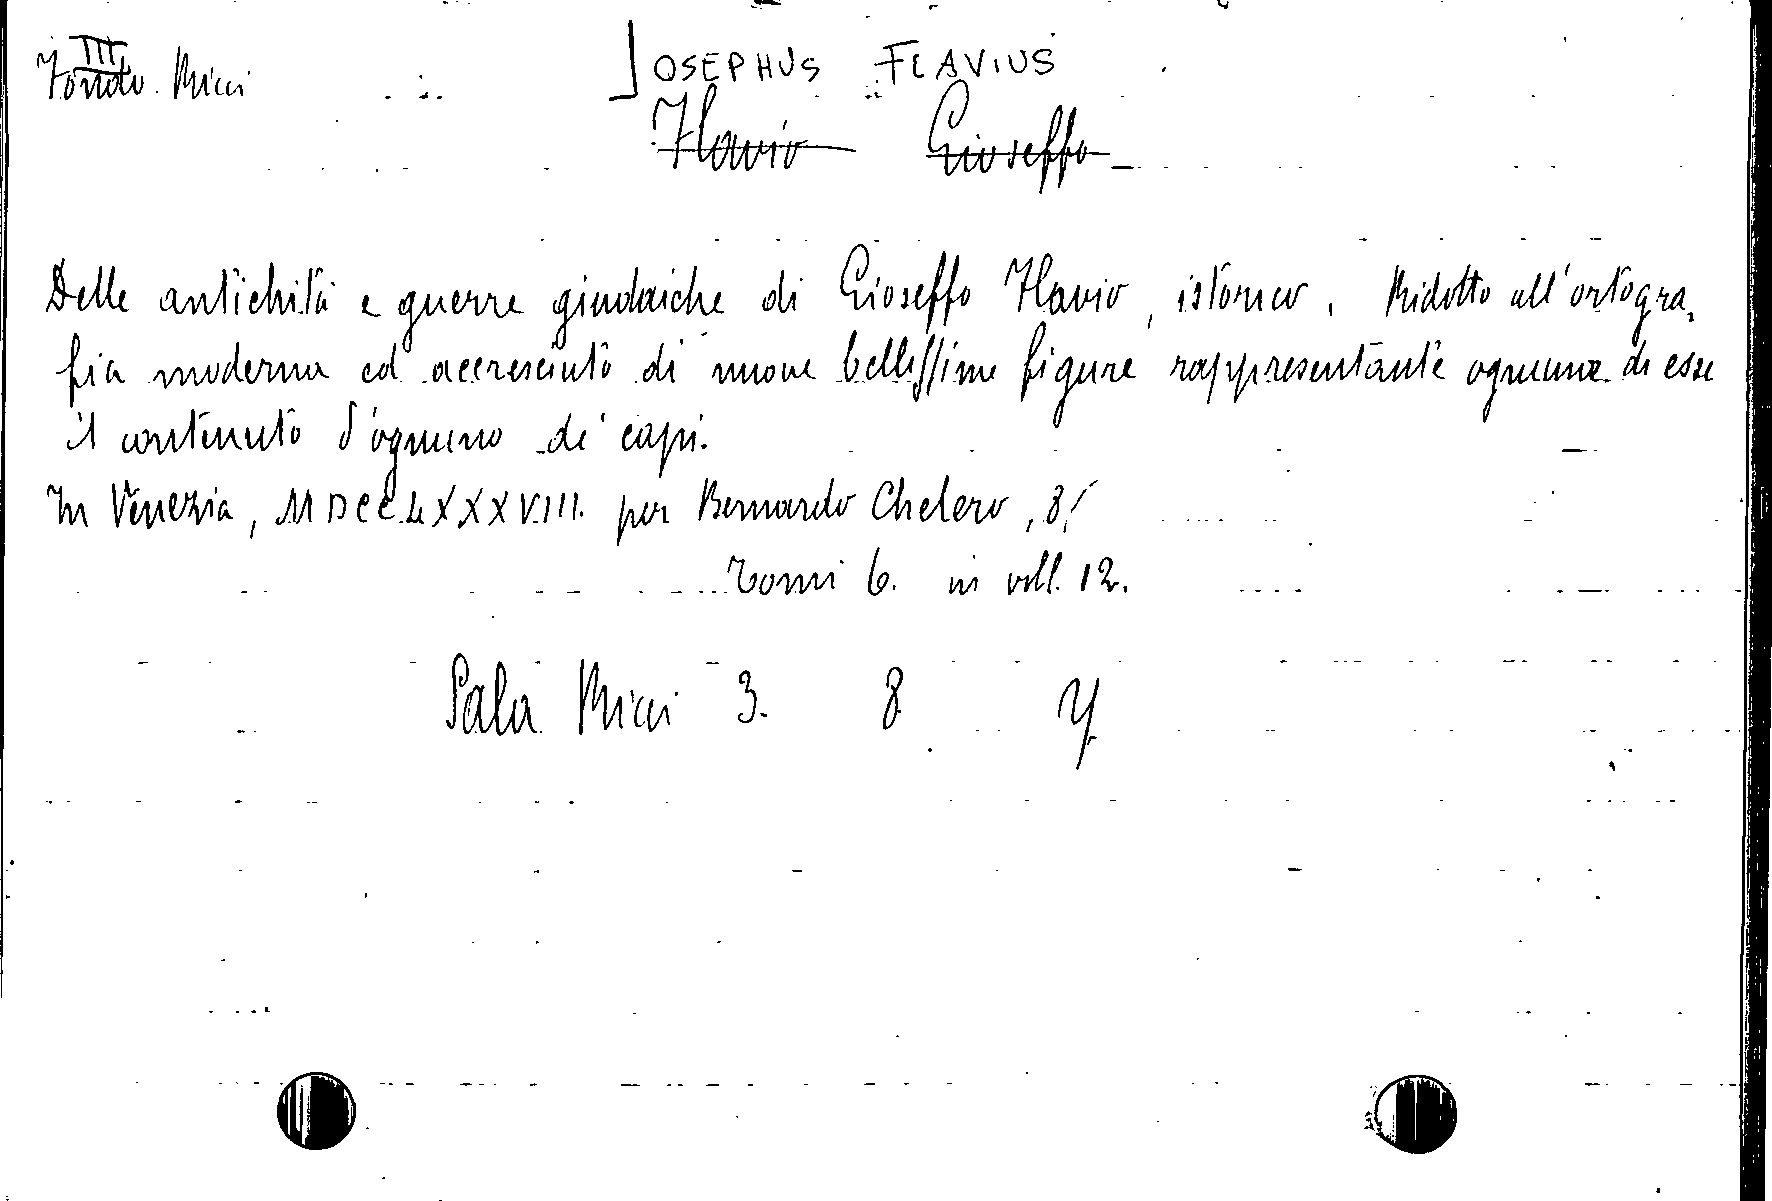 III
Fondo Ricci
JOSEPHUS FLAVIUS
Flavio Gioseffo
Delle antichità e guerre giudaiche di Gioseffo Flavio, istorico. Ridotto all'ortogra-
fia moderna ed accresciuto di nuove bellissime figure rappresentante ognuna di esse
il contenuto d'ognuno de' capi.
In Venezia, MDCCLXXXVIII. per Bernardo Chelero, 8.°
Tomi 6. in voll. 12.
Sala Ricci 3. 8 Y